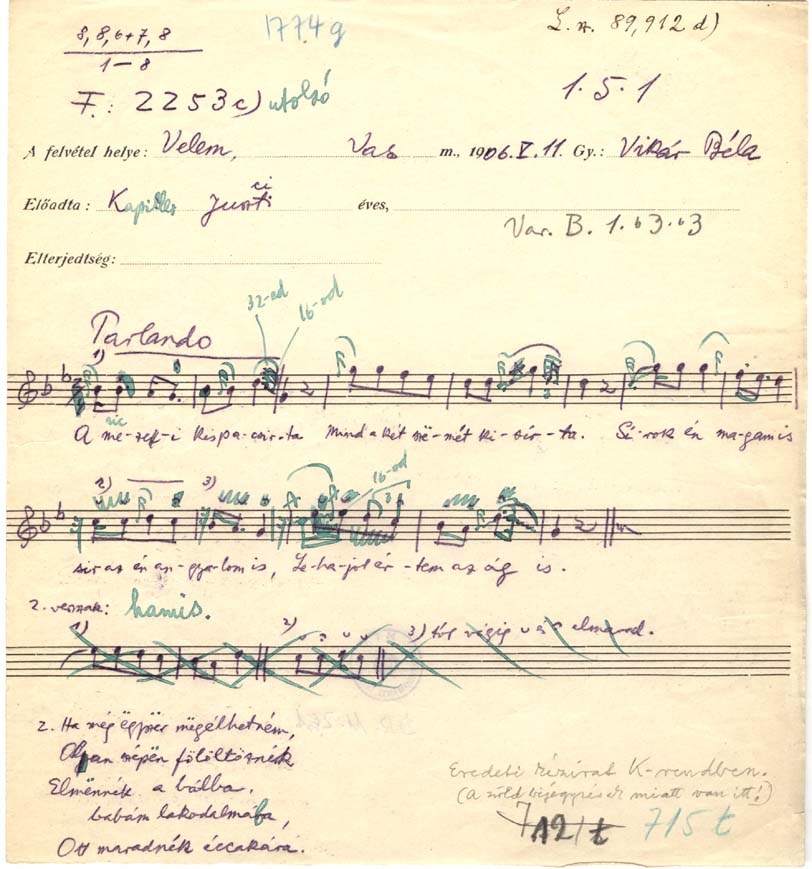 8, 8, 6+7, 8
1–8
1774g
L. sz. 89,912 d)
F.: 2253c) utolsó
1.5.1
A felvétel helye: Velem, Vas m., 1906.V.11. Gy.: Vikár Béla
Előadta: Kapiller Juszti ci éves,
Var. B. 1.63.63
Elterjedtség:
32-ed
16-od
Parlando
1)
sic
A me-zei-i kis pa-csir-ta Mind a két szë-mét ki-sír-ta. Sí-rok én ma-gam is
2) 3)
16-od
sir az én an-gyalom is, Le-ha-jol ér-tem az ág is.
2. versszak: hamis.
1) 2) 3) től végig elmarad.
2. Ha még ëgyszër mëgélhetném,
Olyan szépën fölöltöznék
Elmënnék a bálba,
babám lakodalmába,
Ott maradnék éccakára.
Eredeti kézirat K-rendben.
(A zöld bejegyzések miatt van itt!)
712/t 715 t